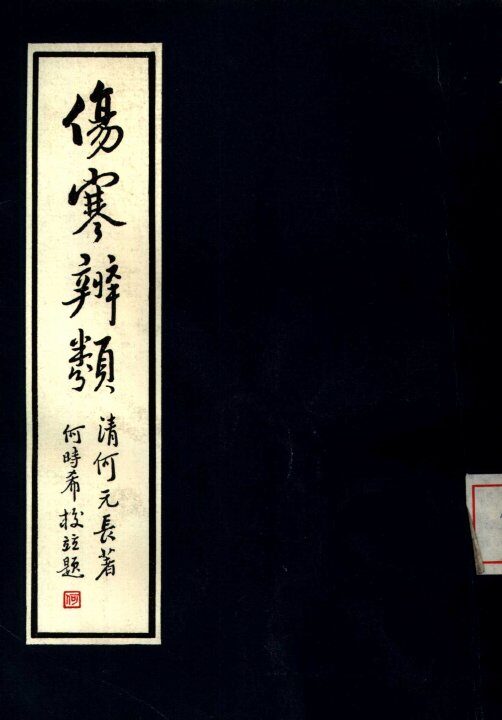 傷寒辨類
清何元長著
何時希校並題
何